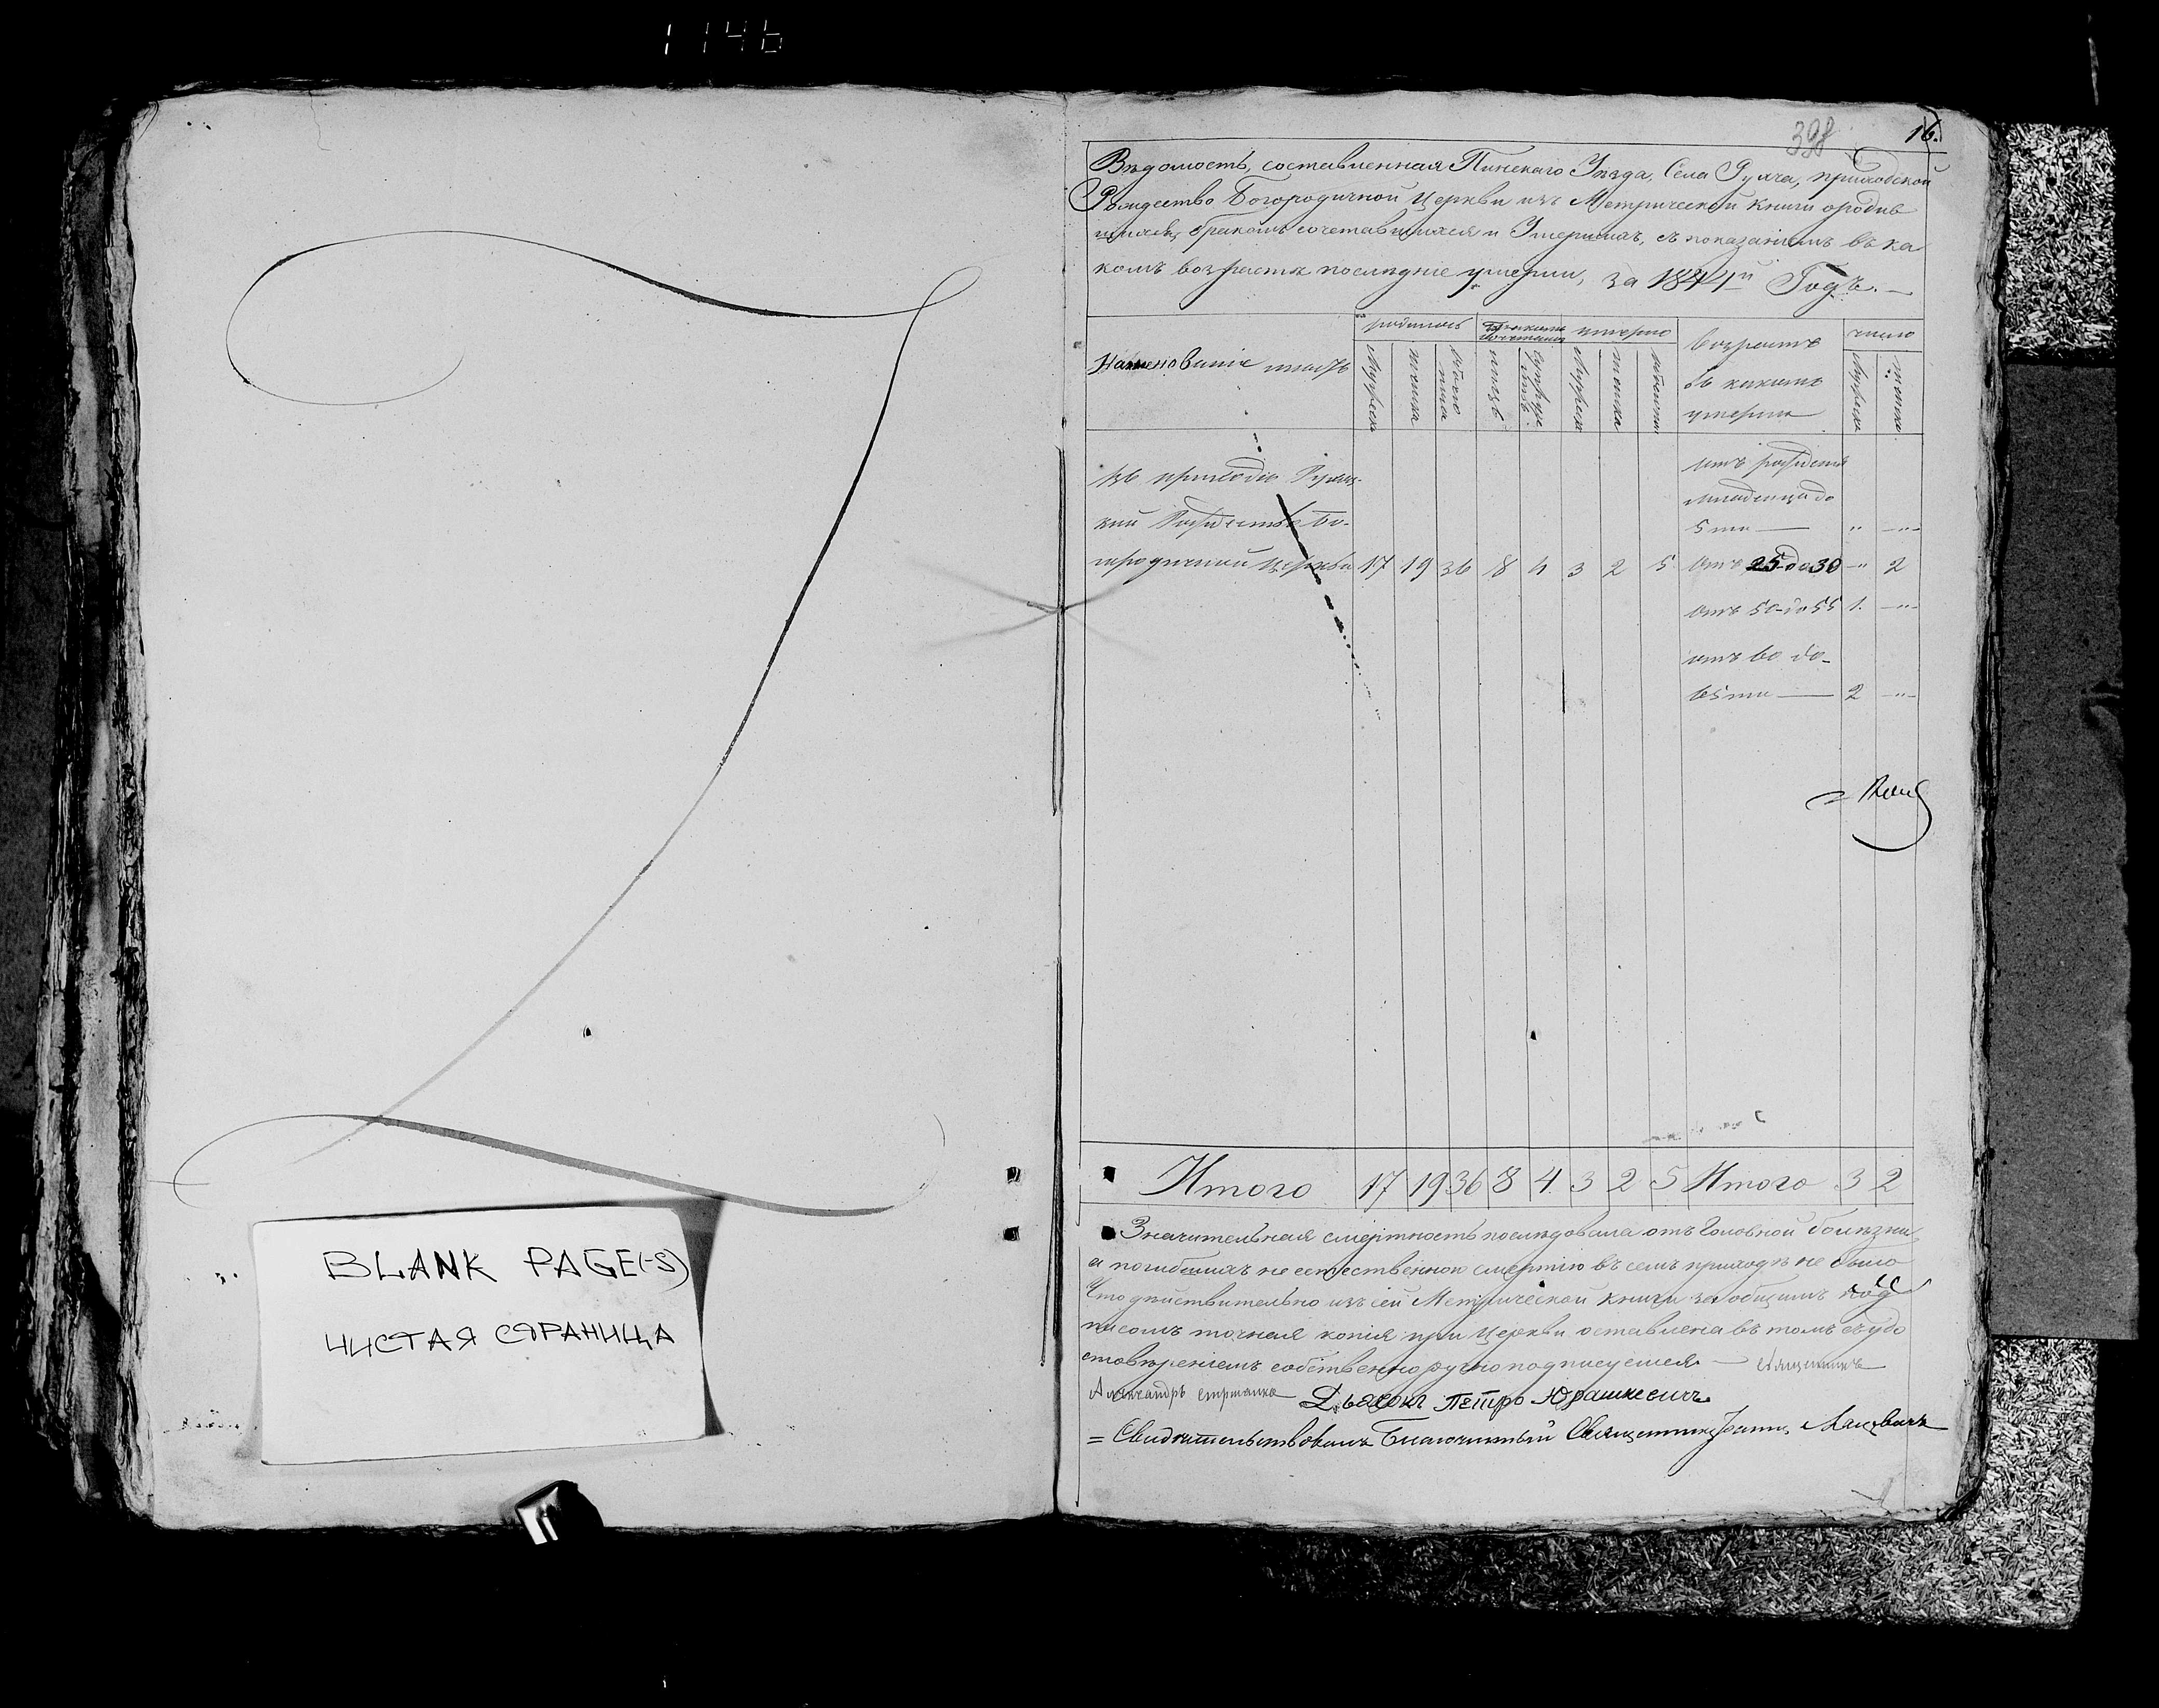 1146
BLANK PAGE(-S)
ЧИСТАЯ СТРАНИЦА
398
16.
Вѣдомость, составленная Пинскаго Уѣзда, Села приходской
Рождество Богородичной Церкви изъ Метрической книги о родив
шихся, бракомъ сочетавшихся и Умершихъ, съ показаніемъ въ ка
комъ возрастѣ послѣдніе умерли, за 1844й Годъ.
родилось бракомъ сочеталось умерло число
Наименованіе мѣстъ мужеска женска обоего пола мужеска женска возрастъ
въ какомъ
умерли
мужеска женска
въ приходѣ отъ рожденія
младенца до
5ти — " — " —
кой Рождество Бо-
городичной Церкви 17 19 36 8 4 3 2 5 отъ 25 до 30 — " 2
отъ 50 до 55 1. — " —
отъ 60 до
65ти — 2 — " —
Итого 17 19 36 8 4. 3 2 5 Итого 3 2
Значительная смертность послѣдовала отъ Головной болѣзни,
а погибшихъ не естественною смертію въ семъ приходѣ не было
Что дѣйствительно изъ сей Метрической книги за общимъ под
писомъ точная копія при Церкви оставлена въ томъ съ удо
стовѣреніемъ собственноручно подписуемся — Священникъ
Александръ Дьяконъ Петро Юрашкевичъ
= Свидѣтельствовалъ Благочинный Священникъ Іоаннъ